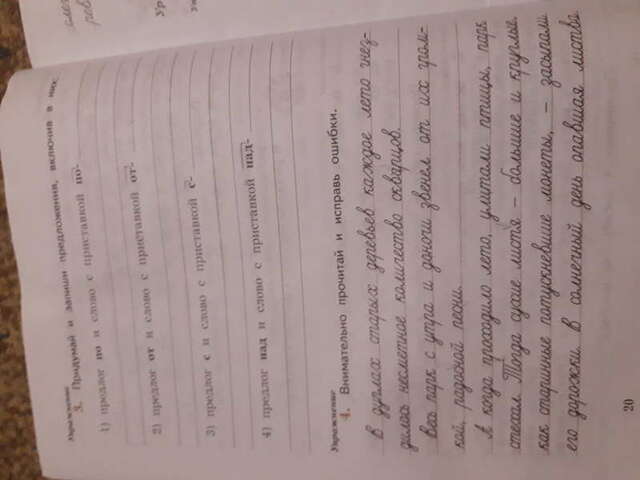 Упражнение
3. Придумай и запиши предложения, включив в них:
1) предлог по и слово с приставкой по-
2) предлог от и слово с приставкой от-
3) предлог с и слово с приставкой с-
4) предлог над и слово с приставкой над-
Упражнение
4. Внимательно прочитай и исправь ошибки.
В дуплах старых деревьев каждое лето гнез-
дилось несметное количество скварцов.
Весь парк с утра и доночи звенел от их гром-
кой, радосной песни.
А когда проходило лето, улитали птицы, парк
стехал. Тогда сухие листя – большие и круглые,
как старинные потускневшие монеты, – засыпали
его дорожки. В солнечный день опавшая листва
20